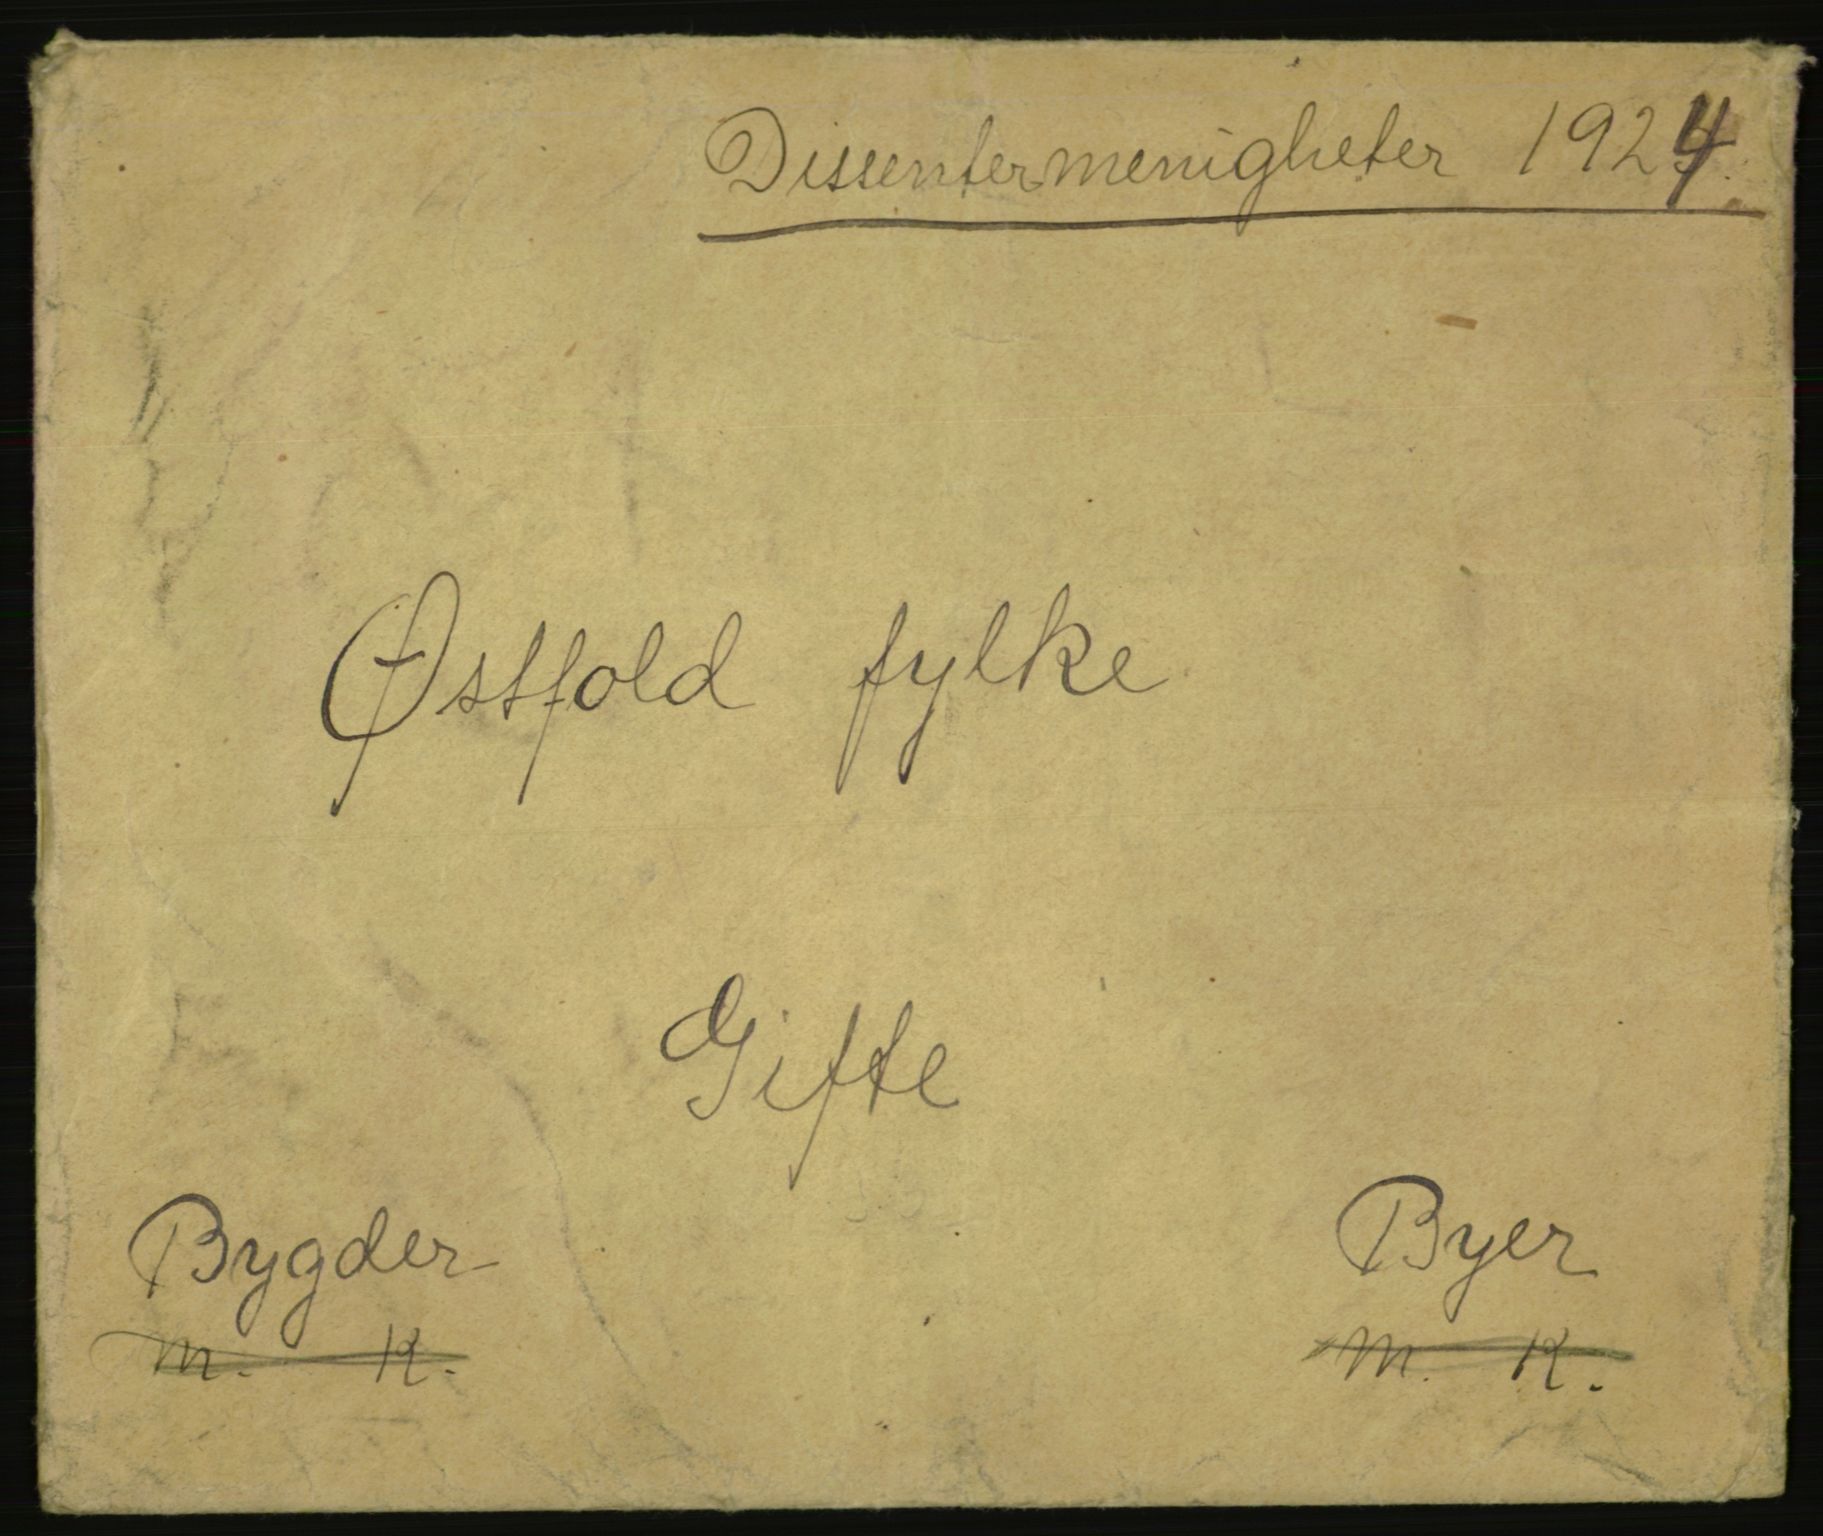 Dissentermenigheter 1924.
Østfold fylke
Gifte
Bygder Byer
M. K. M. K.